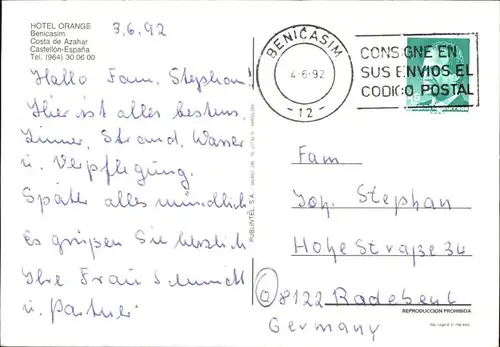 HOTEL ORANGE
Benicasim
Costa de Azahar
Castellón-España
Tel. (964) 30 06 00
3.6.92
Hallo Fam. Stephan!
Hier ist alles bestens.
Zimmer, Strand, Wasser
u. Verpflegung.
Später alles mündlich
Es grüßen Sie herzlich
Ihre Frau Schmidt
u. Partner
BENICASIM
4-6-92
-12-
CONSIGNE EN
SUS ENVIOS EL
CODIGO POSTAL
Fam
Joh. Stephan
Hohe Straße 34
O 8122 Radebeul
Germany
REPRODUCCION PROHIBIDA